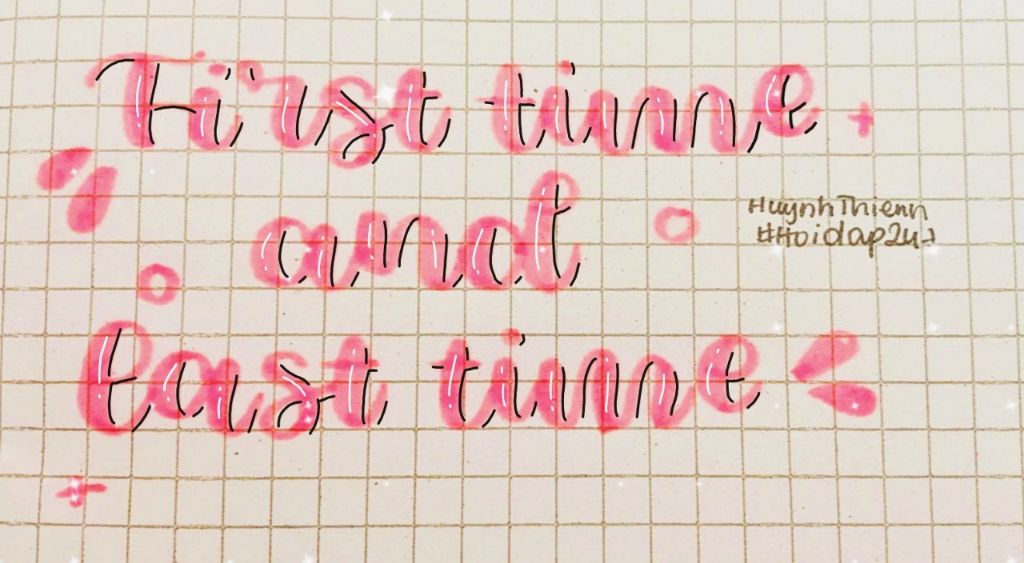 First time
and
last time
HuynhThienn
#Hoidap247